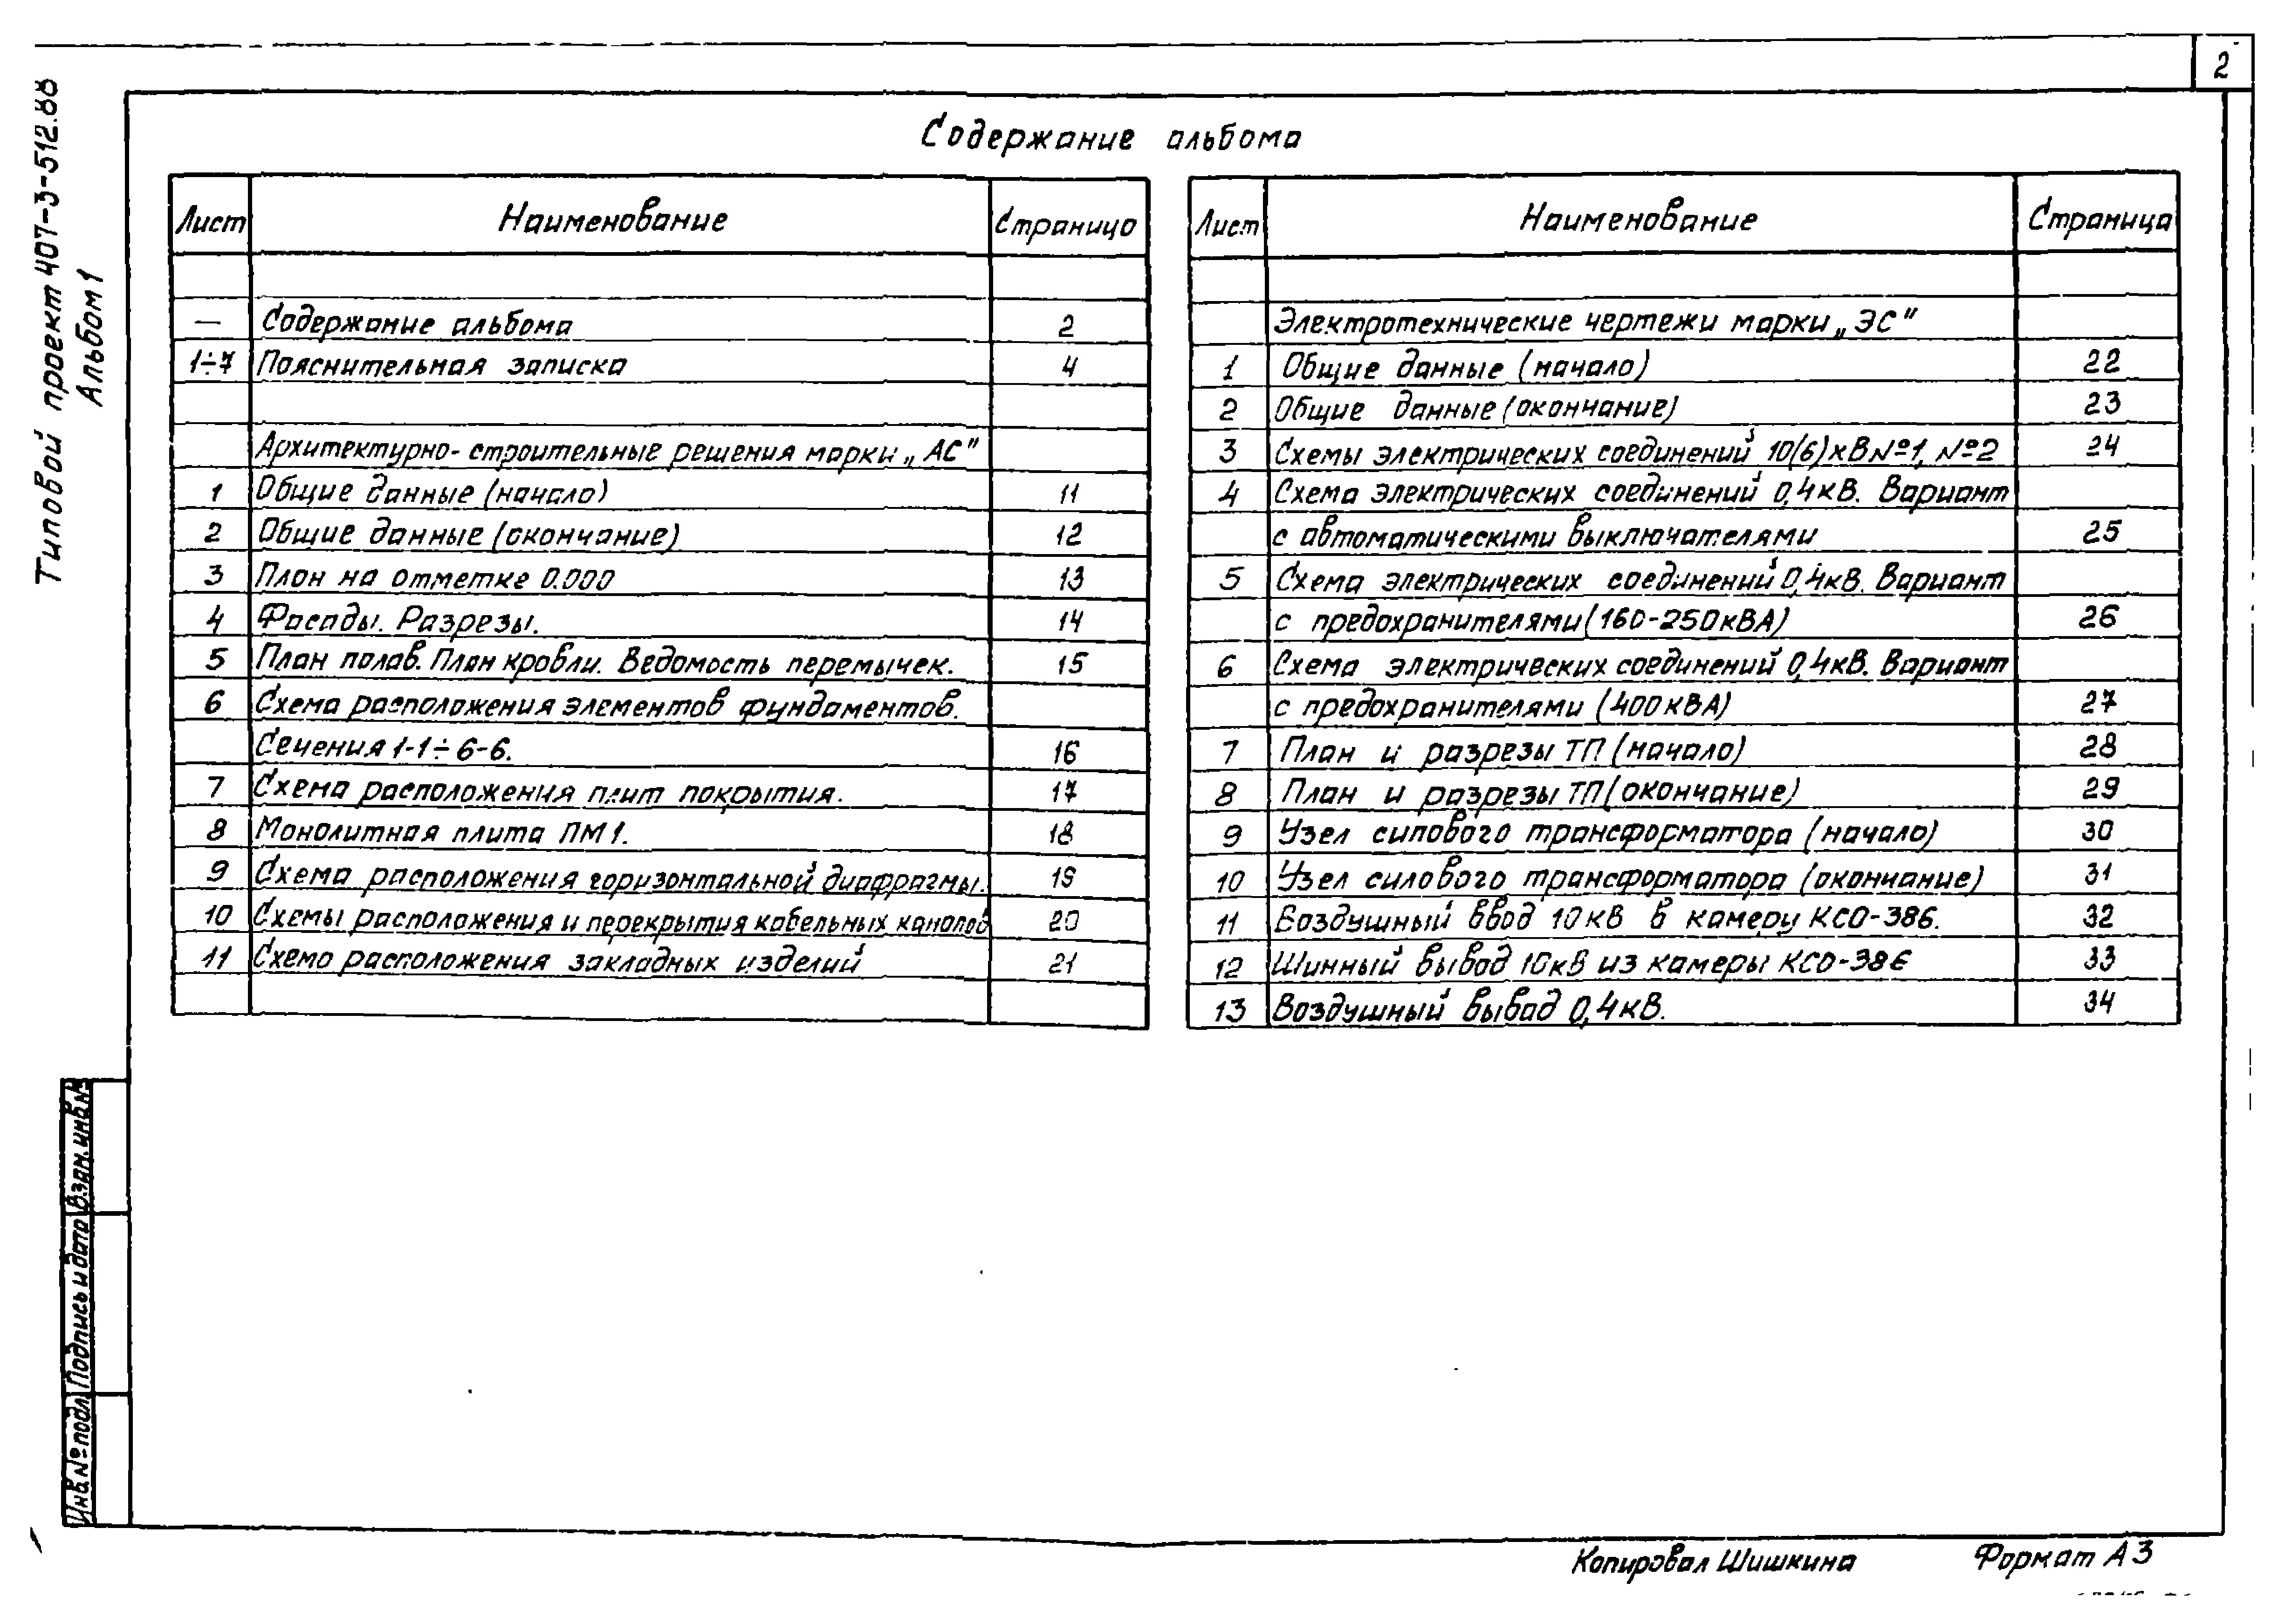 2
Типовой проект 407-3-512.88
Альбом 1
Содержание альбома
Лист Наименование Страница
— Содержание альбома 2
1÷7 Пояснительная записка 4
Архитектурно-строительные решения марки „АС"
1 Общие данные (начало) 11
2 Общие данные (окончание) 12
3 План на отметке 0.000 13
4 Фасады. Разрезы. 14
5 План полов. План кровли. Ведомость перемычек. 15
6 Схема расположения элементов фундаментов.
Сечения 1-1÷6-6. 16
7 Схема расположения плит покрытия. 17
8 Монолитная плита ПМ1. 18
9 Схема расположения горизонтальной диафрагмы. 19
10 Схемы расположения и перекрытия кабельных каналов 20
11 Схема расположения закладных изделий 21
Лист Наименование Страница
Электротехнические чертежи марки „ЭС"
1 Общие данные (начало) 22
2 Общие данные (окончание) 23
3 Схемы электрических соединений 10(6)кВ №1, №2 24
4 Схема электрических соединений 0,4кВ. Вариант
с автоматическими выключателями 25
5 Схема электрических соединений 0,4кВ. Вариант
с предохранителями (160-250кВА) 26
6 Схема электрических соединений 0,4кВ. Вариант
с предохранителями (400кВА) 27
7 План и разрезы ТП (начало) 28
8 План и разрезы ТП (окончание) 29
9 Узел силового трансформатора (начало) 30
10 Узел силового трансформатора (окончание) 31
11 Воздушный ввод 10кВ в камеру КСО-386. 32
12 Шинный вывод 10кВ из камеры КСО-386 33
13 Воздушный вывод 0,4кВ. 34
Инв.№ подл. Подпись и дата Взам. инв.№
Копировал Шишкина Формат А3